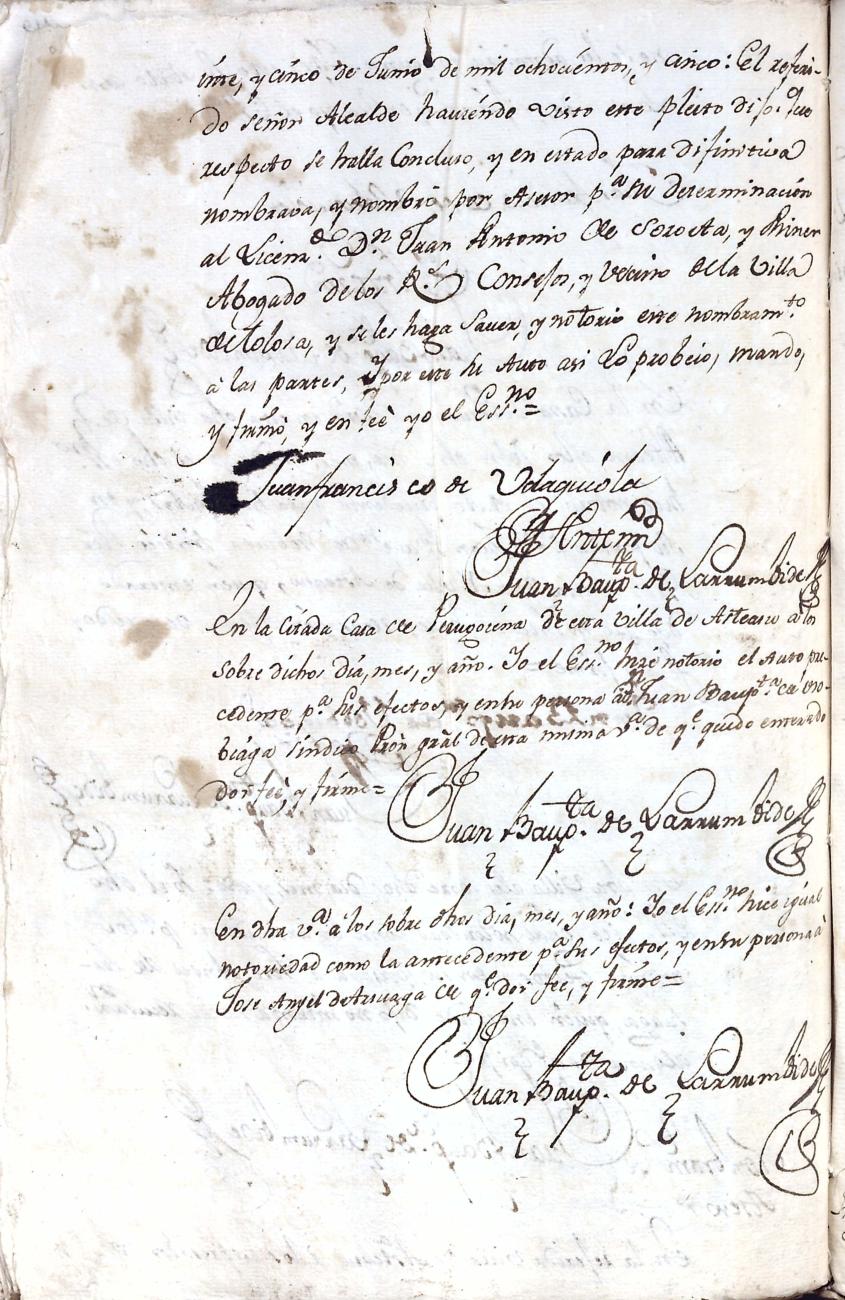 inte, y cinco de Junio de mil ochocientos, y cinco: El referi-
do señor Alcalde haviendo visto este pleito dijo: que
respecto se halla Concluso, y en estado para difinitiva
nombrava, y nombró por Asesor pª su determinación
al Licenᵈᵒ Dⁿ Juan Antonio de Sorosta, y Miner
Abogado de los Rˢ Consejos, y vecino de la Villa
de Tolosa, y se les haga saver, y notorio este nombramᵗᵒ
a las partes, Y por este su Auto asi lo probeio, mandó,
y firmó, y en feè yo el Essⁿᵒ =
Juan francisco de Udaquiola
Antemi
Juan Baupᵗᵃ de Larrumbide
En la Citada Casa de Perugorena de esta Villa de Asteasu a los
sobre dichos dia, mes, y año. Yo el Essⁿᵒ hize notorio el Auto pre-
cedente pª sus efectos, y en su persona a Juan Baupᵗª de
biaga sindico Prōr grāl de esta misma vª de qᵉ quedo enterado
Doy feè, y firmé =
Juan Baupᵗᵃ de Larrumbide
En dha vª a los sobre dhos dia, mes, y año: Yo el Essⁿᵒ hice igual
notoriedad como la antecedente pª sus efectos, y en su persona a
Jose Angel de Aruaga de qᵉ doy fee, y firmé =
Juan Baupᵗᵃ de Larrumbide